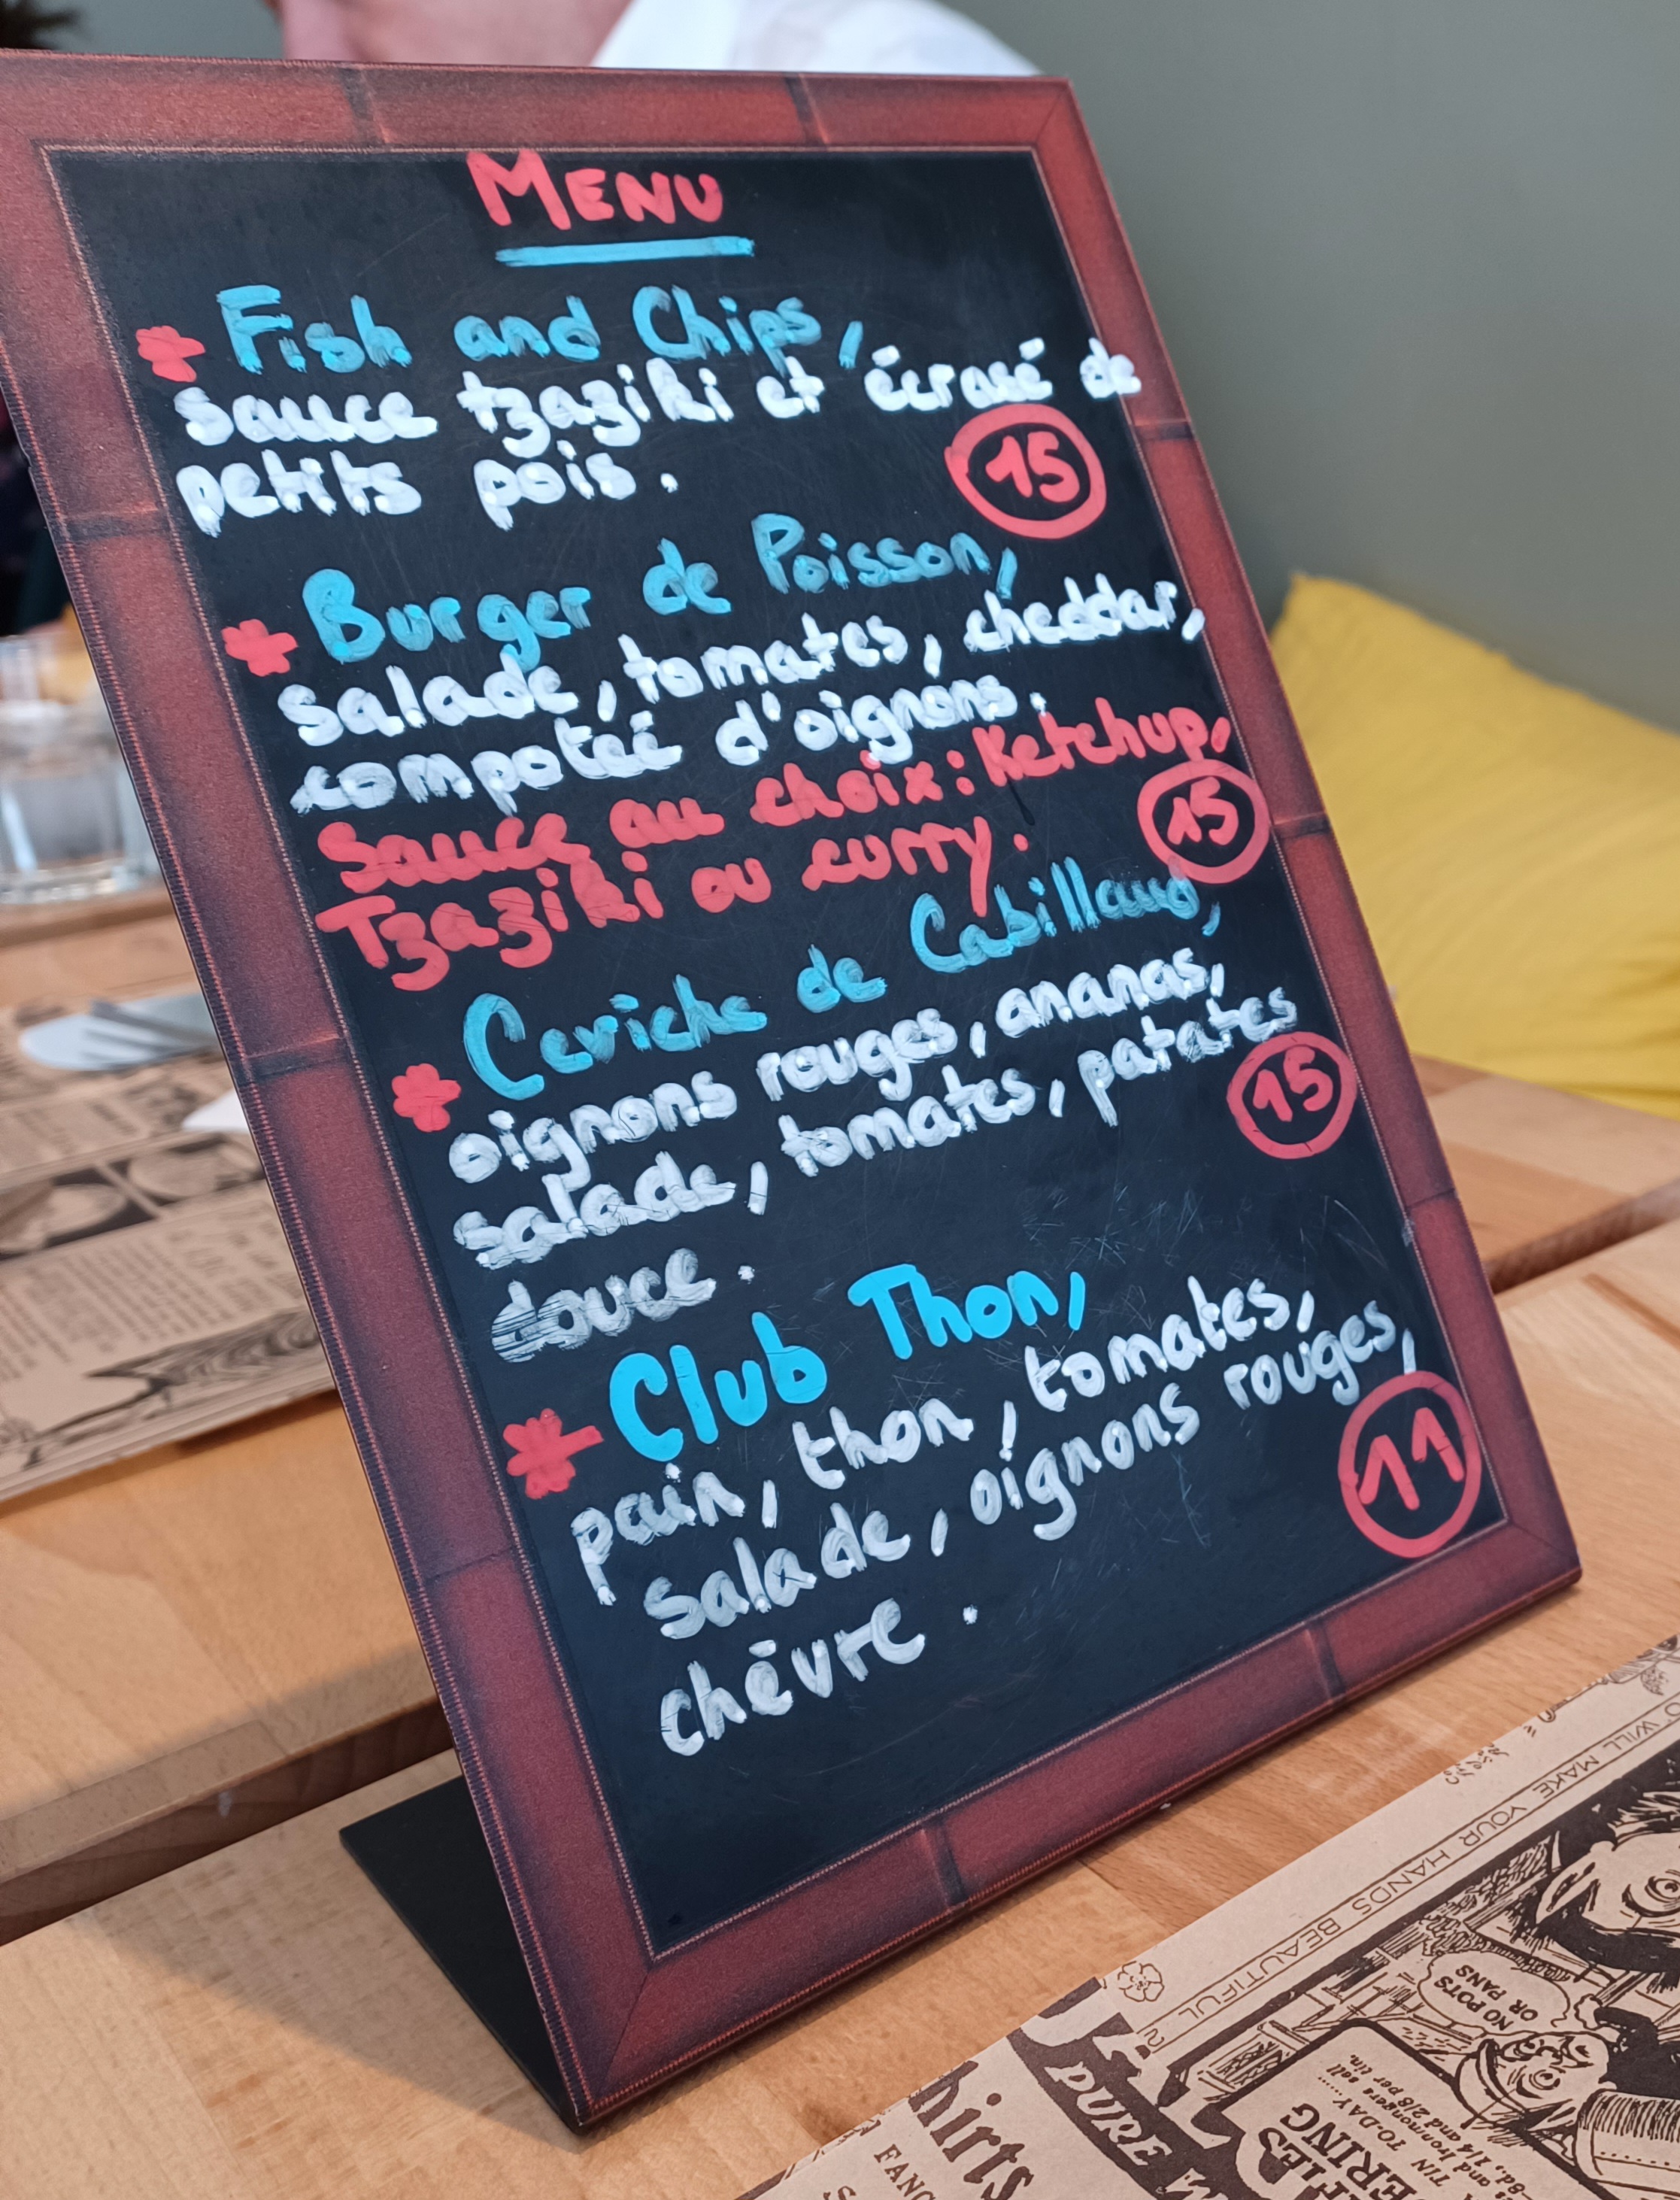 MENU
Fish and Chips,
sauce tzaziki et écrasé de
petits pois.
15
Burger de Poisson,
salade, tomates, cheddar,
compotéé d'oignons.
Sauce au choix: Ketchup,
Tzaziki ou curry.
15
Ceviche de Cabillaud,
oignons rouges, ananas,
salade, tomates, patates
douce.
15
Club Thon,
pain, thon, tomates,
salade, oignons rouges,
chèvre.
11
WILL MAKE YOUR HANDS BEAUTIFUL
NO POTS
OR PANS
PURE
hirts
TIN
TO-DAY